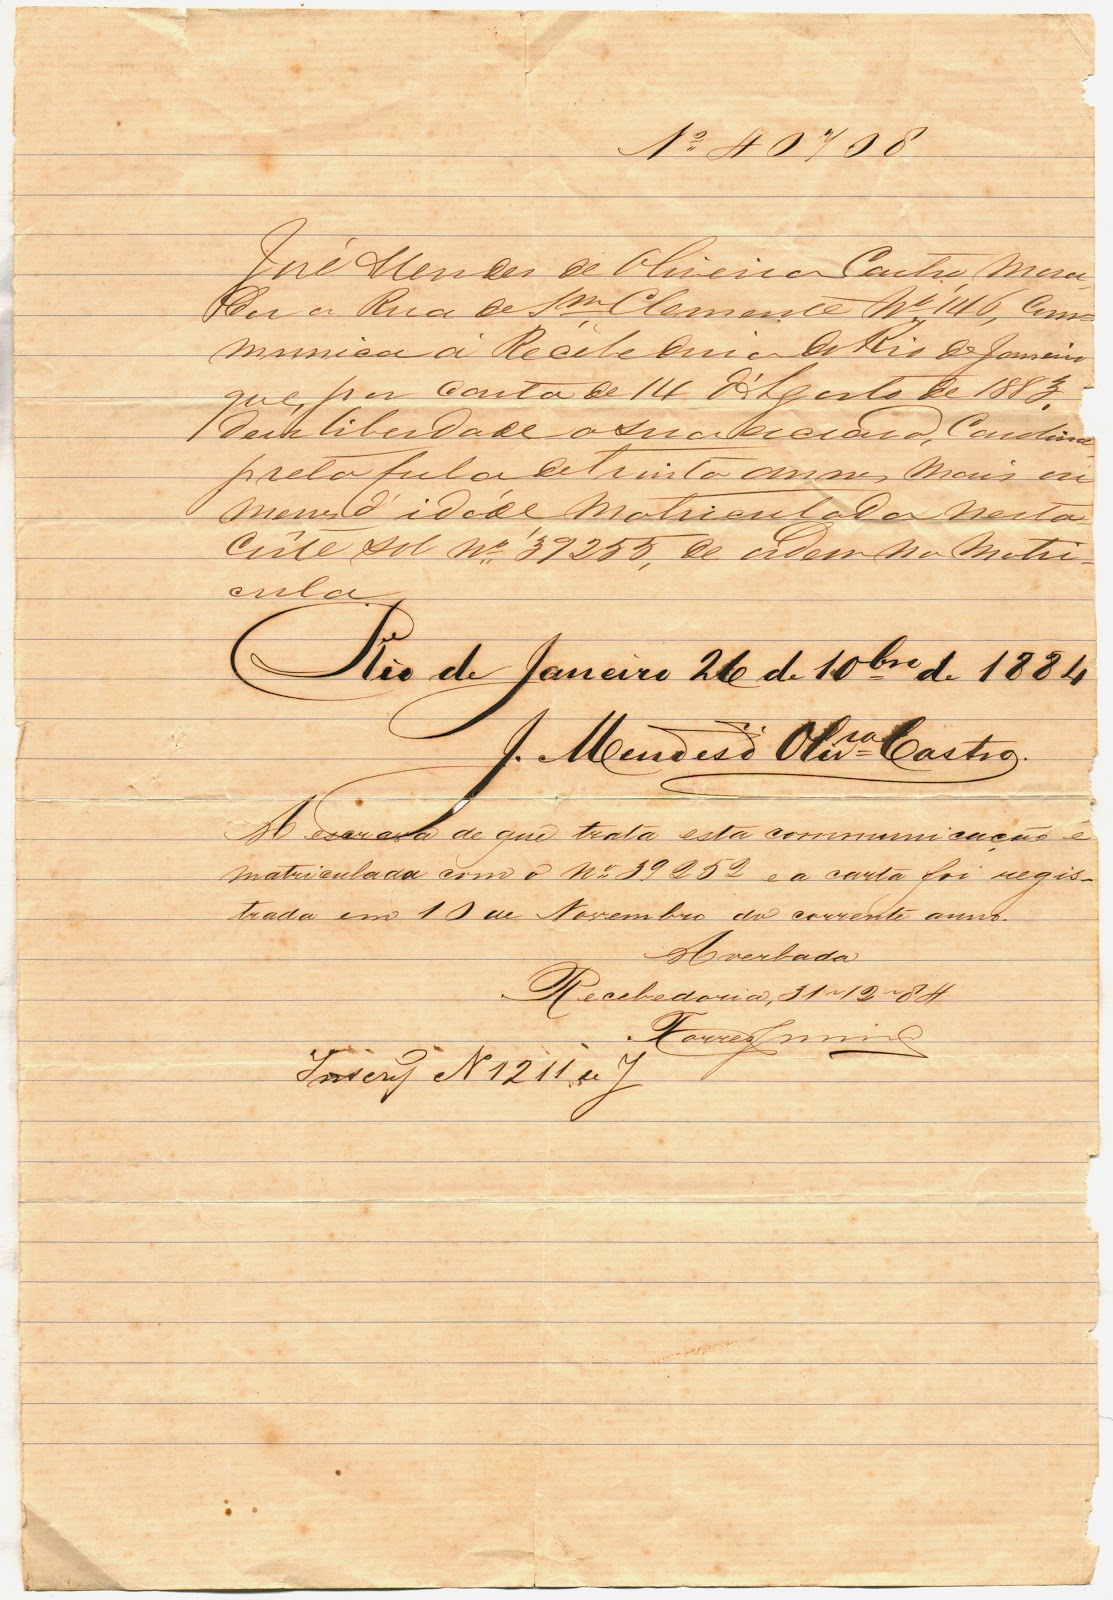 Nº 40708
José Mendes de Oliveira Castro, mora-
dor a Rua de Sm Clemente Nº 146, com-
munica á Recebedoria do Rio de Janeiro
que, por carta de 14 d'Agosto de 1883,
deu liberdade a sua escrava, Carolina,
preta fula de trinta annos mais ou
menos d'idade matriculada nesta
Côrte sob nº 39255, de ordem na matri-
cula
Rio de Janeiro 26 de 10bro de 1884
J. Mendes d' Olivra Castro.
A escrava de que trata esta communicação é
matriculada com o nº 39252 e a carta foi regis-
trada em 10 de Novembro do corrente anno.
Averbada
Recebedoria, 31-12-84
Torres Junior
N 1211 de J